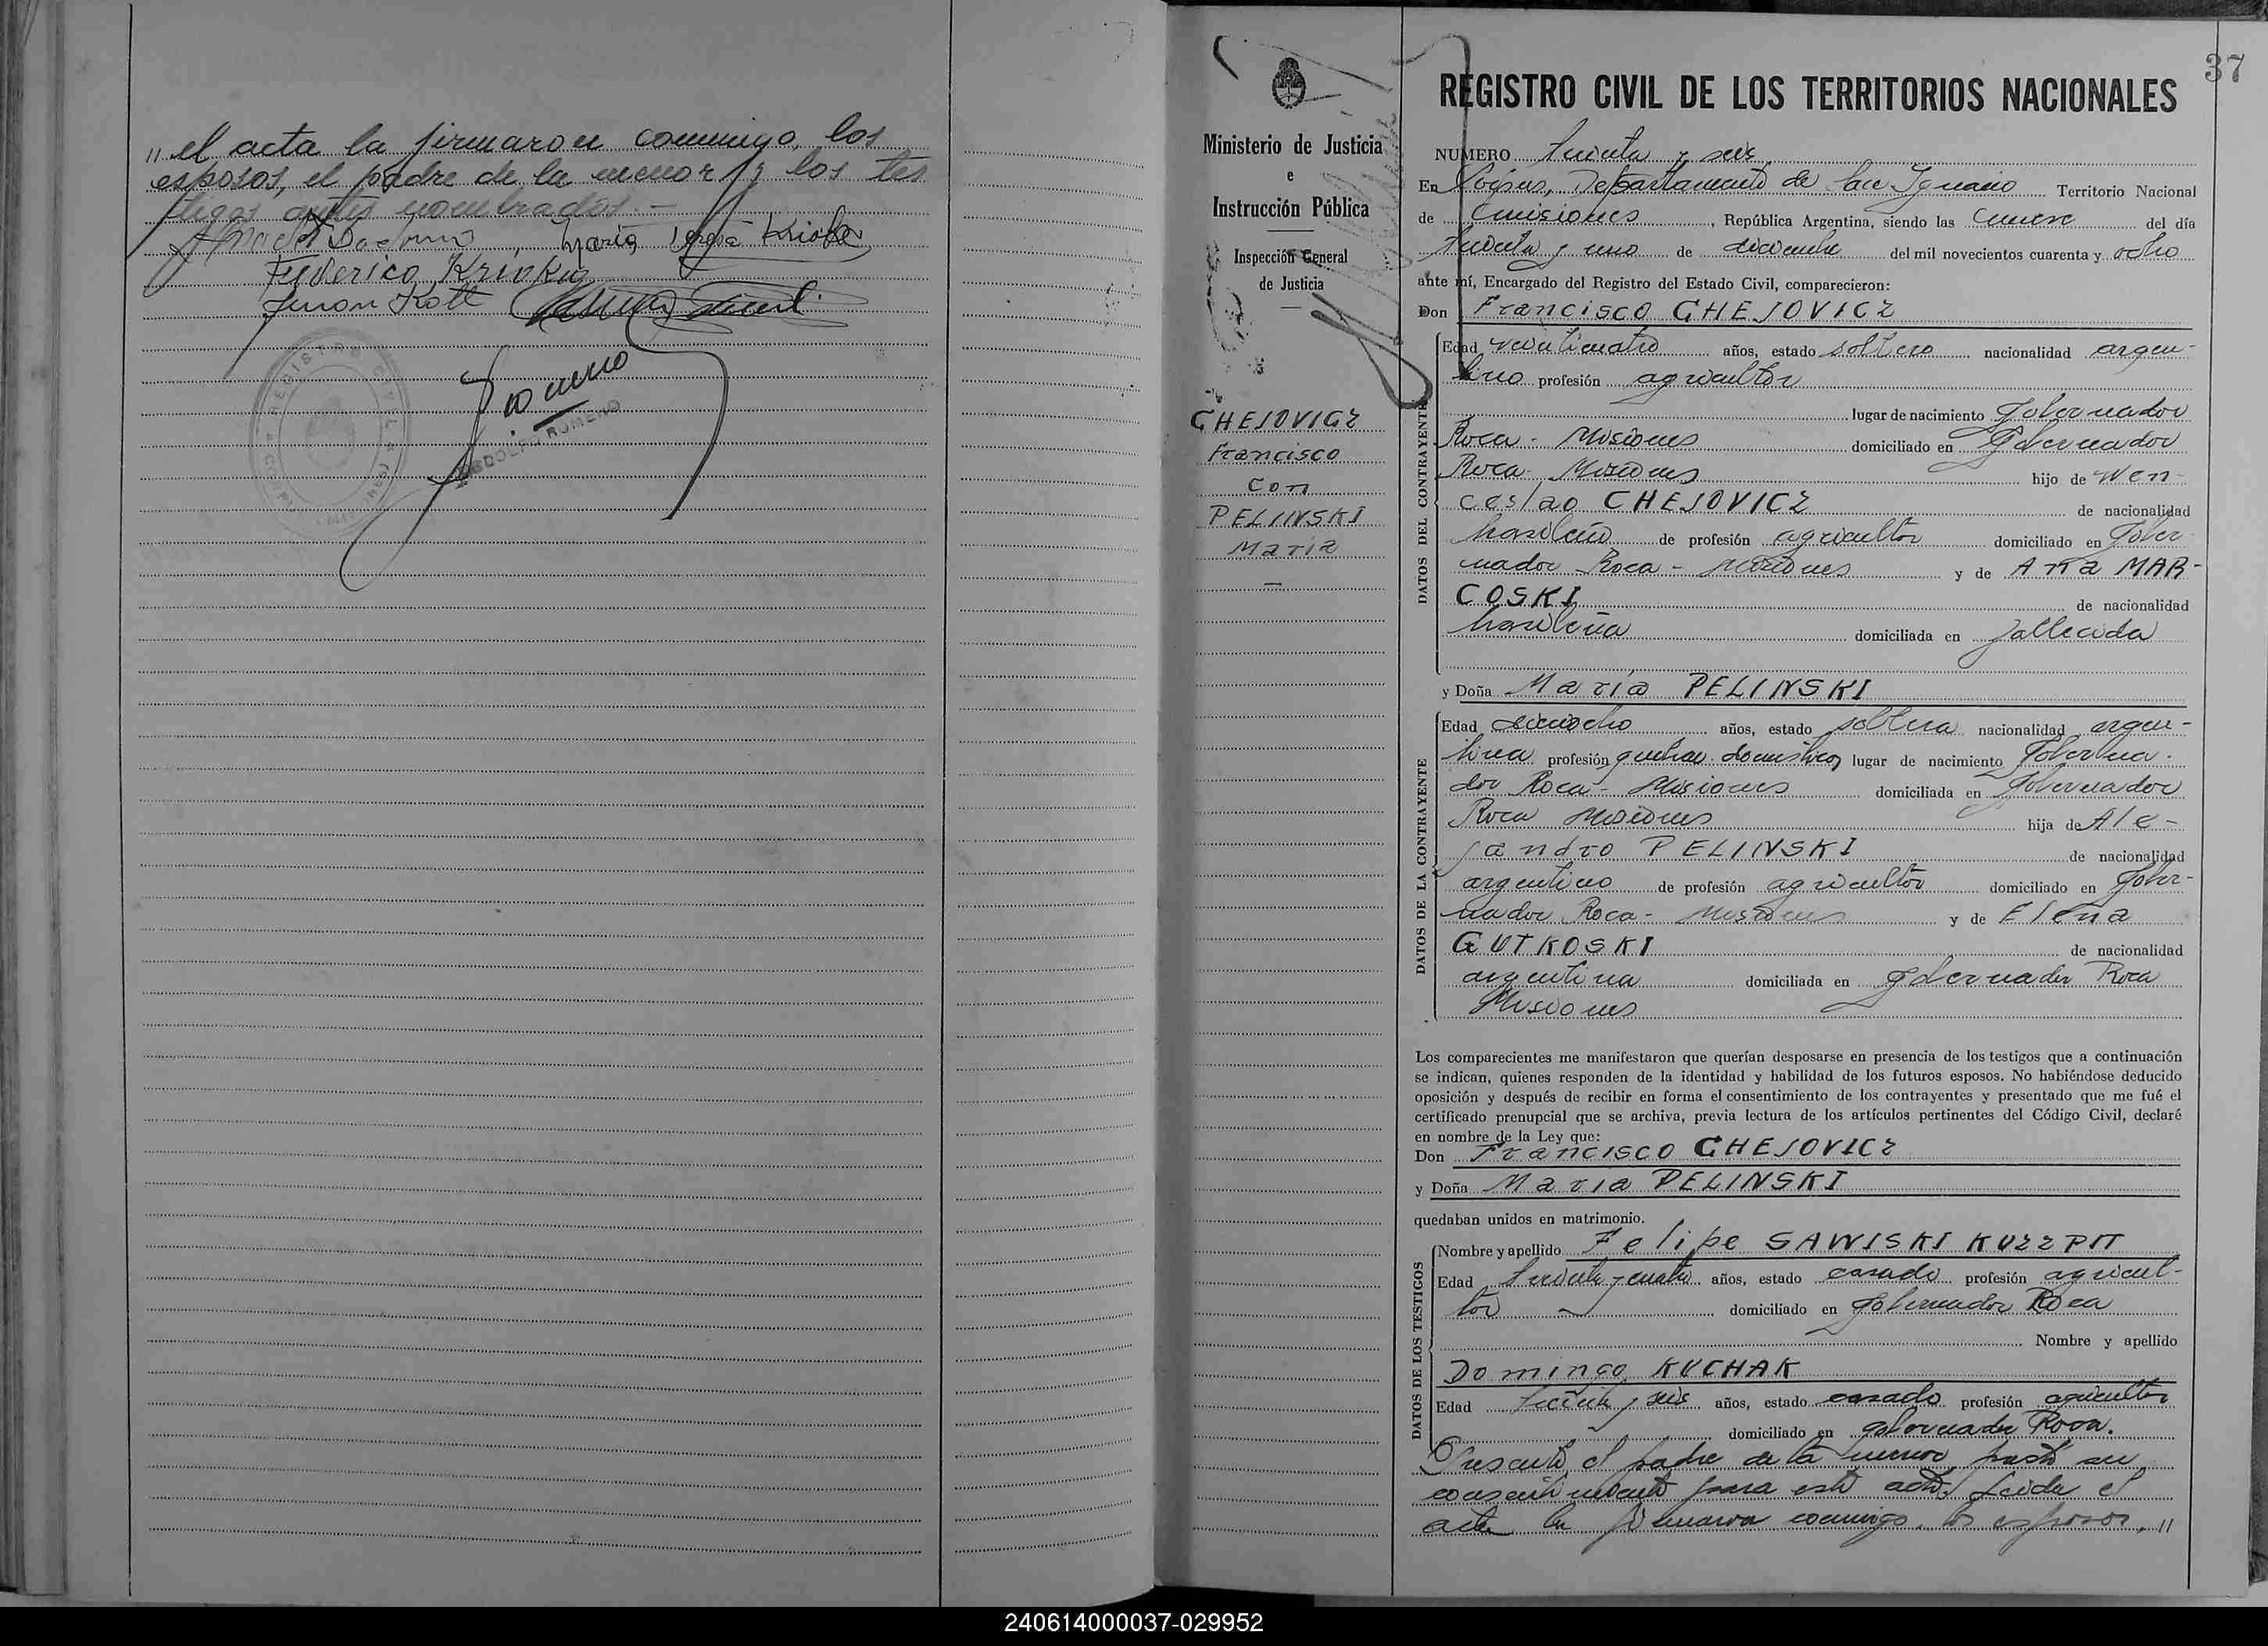 " el acta la firmaron conmigo, los
esposos, el padre de la menor y los tes
tigos antes nombrados.-
Federico Krivka
Juan Kott
Romero
ADOLFO ROMERO
REGISTRO CIVIL
37
Ministerio de Justicia
e
Instrucción Pública
Inspección General
de Justicia
CHEJOVICZ
Francisco
con
PELINSKI
María
—
REGISTRO CIVIL DE LOS TERRITORIOS NACIONALES
NUMERO treinta y seis
En Corpus, Departamento de San Ignacio Territorio Nacional
de Misiones, República Argentina, siendo las nueve del día
treinta y uno de diciembre del mil novecientos cuarenta y ocho
ante mí, Encargado del Registro del Estado Civil, comparecieron:
Don Francisco CHEJOVICZ
DATOS DEL CONTRAYENTE
Edad veinticuatro años, estado soltero nacionalidad argen-
tino profesión agricultor
lugar de nacimiento Gobernador
Roca - Misiones domiciliado en Gobernador
Roca - Misiones hijo de Wen-
ceslao CHEJOVICZ de nacionalidad
brasileño de profesión agricultor domiciliado en Gober-
nador Roca - Misiones y de Ana MAR-
COSKI de nacionalidad
brasileña domiciliada en fallecida
y Doña María PELINSKI
DATOS DE LA CONTRAYENTE
Edad dieciocho años, estado soltera nacionalidad argen-
tina profesión quehac. domésticos lugar de nacimiento Goberna-
dor Roca - Misiones domiciliada en Gobernador
Roca Misiones hija de Ale-
jandro PELINSKI de nacionalidad
argentino de profesión agricultor domiciliado en Gober-
nador Roca - Misiones y de Elena
GUTKOSKI de nacionalidad
argentina domiciliada en Gobernador Roca
Misiones
Los comparecientes me manifestaron que querían desposarse en presencia de los testigos que a continuación
se indican, quienes responden de la identidad y habilidad de los futuros esposos. No habiéndose deducido
oposición y después de recibir en forma el consentimiento de los contrayentes y presentado que me fué el
certificado prenupcial que se archiva, previa lectura de los artículos pertinentes del Código Civil, declaré
en nombre de la Ley que:
Don Francisco CHEJOVICZ
y Doña María PELINSKI
quedaban unidos en matrimonio.
DATOS DE LOS TESTIGOS
Nombre y apellido Felipe SAWISKI
Edad treinta y cuatro años, estado casado profesión agricul-
tor domiciliado en Gobernador Roca
Nombre y apellido
Domingo KUCHAK
Edad treinta y seis años, estado casado profesión agricultor
domiciliado en gobernador Roca.
Presente el padre de la menor, prestó su
consentimiento para este acto. Leída el
acta la firmaron conmigo, los esposos, "
240614000037-029952